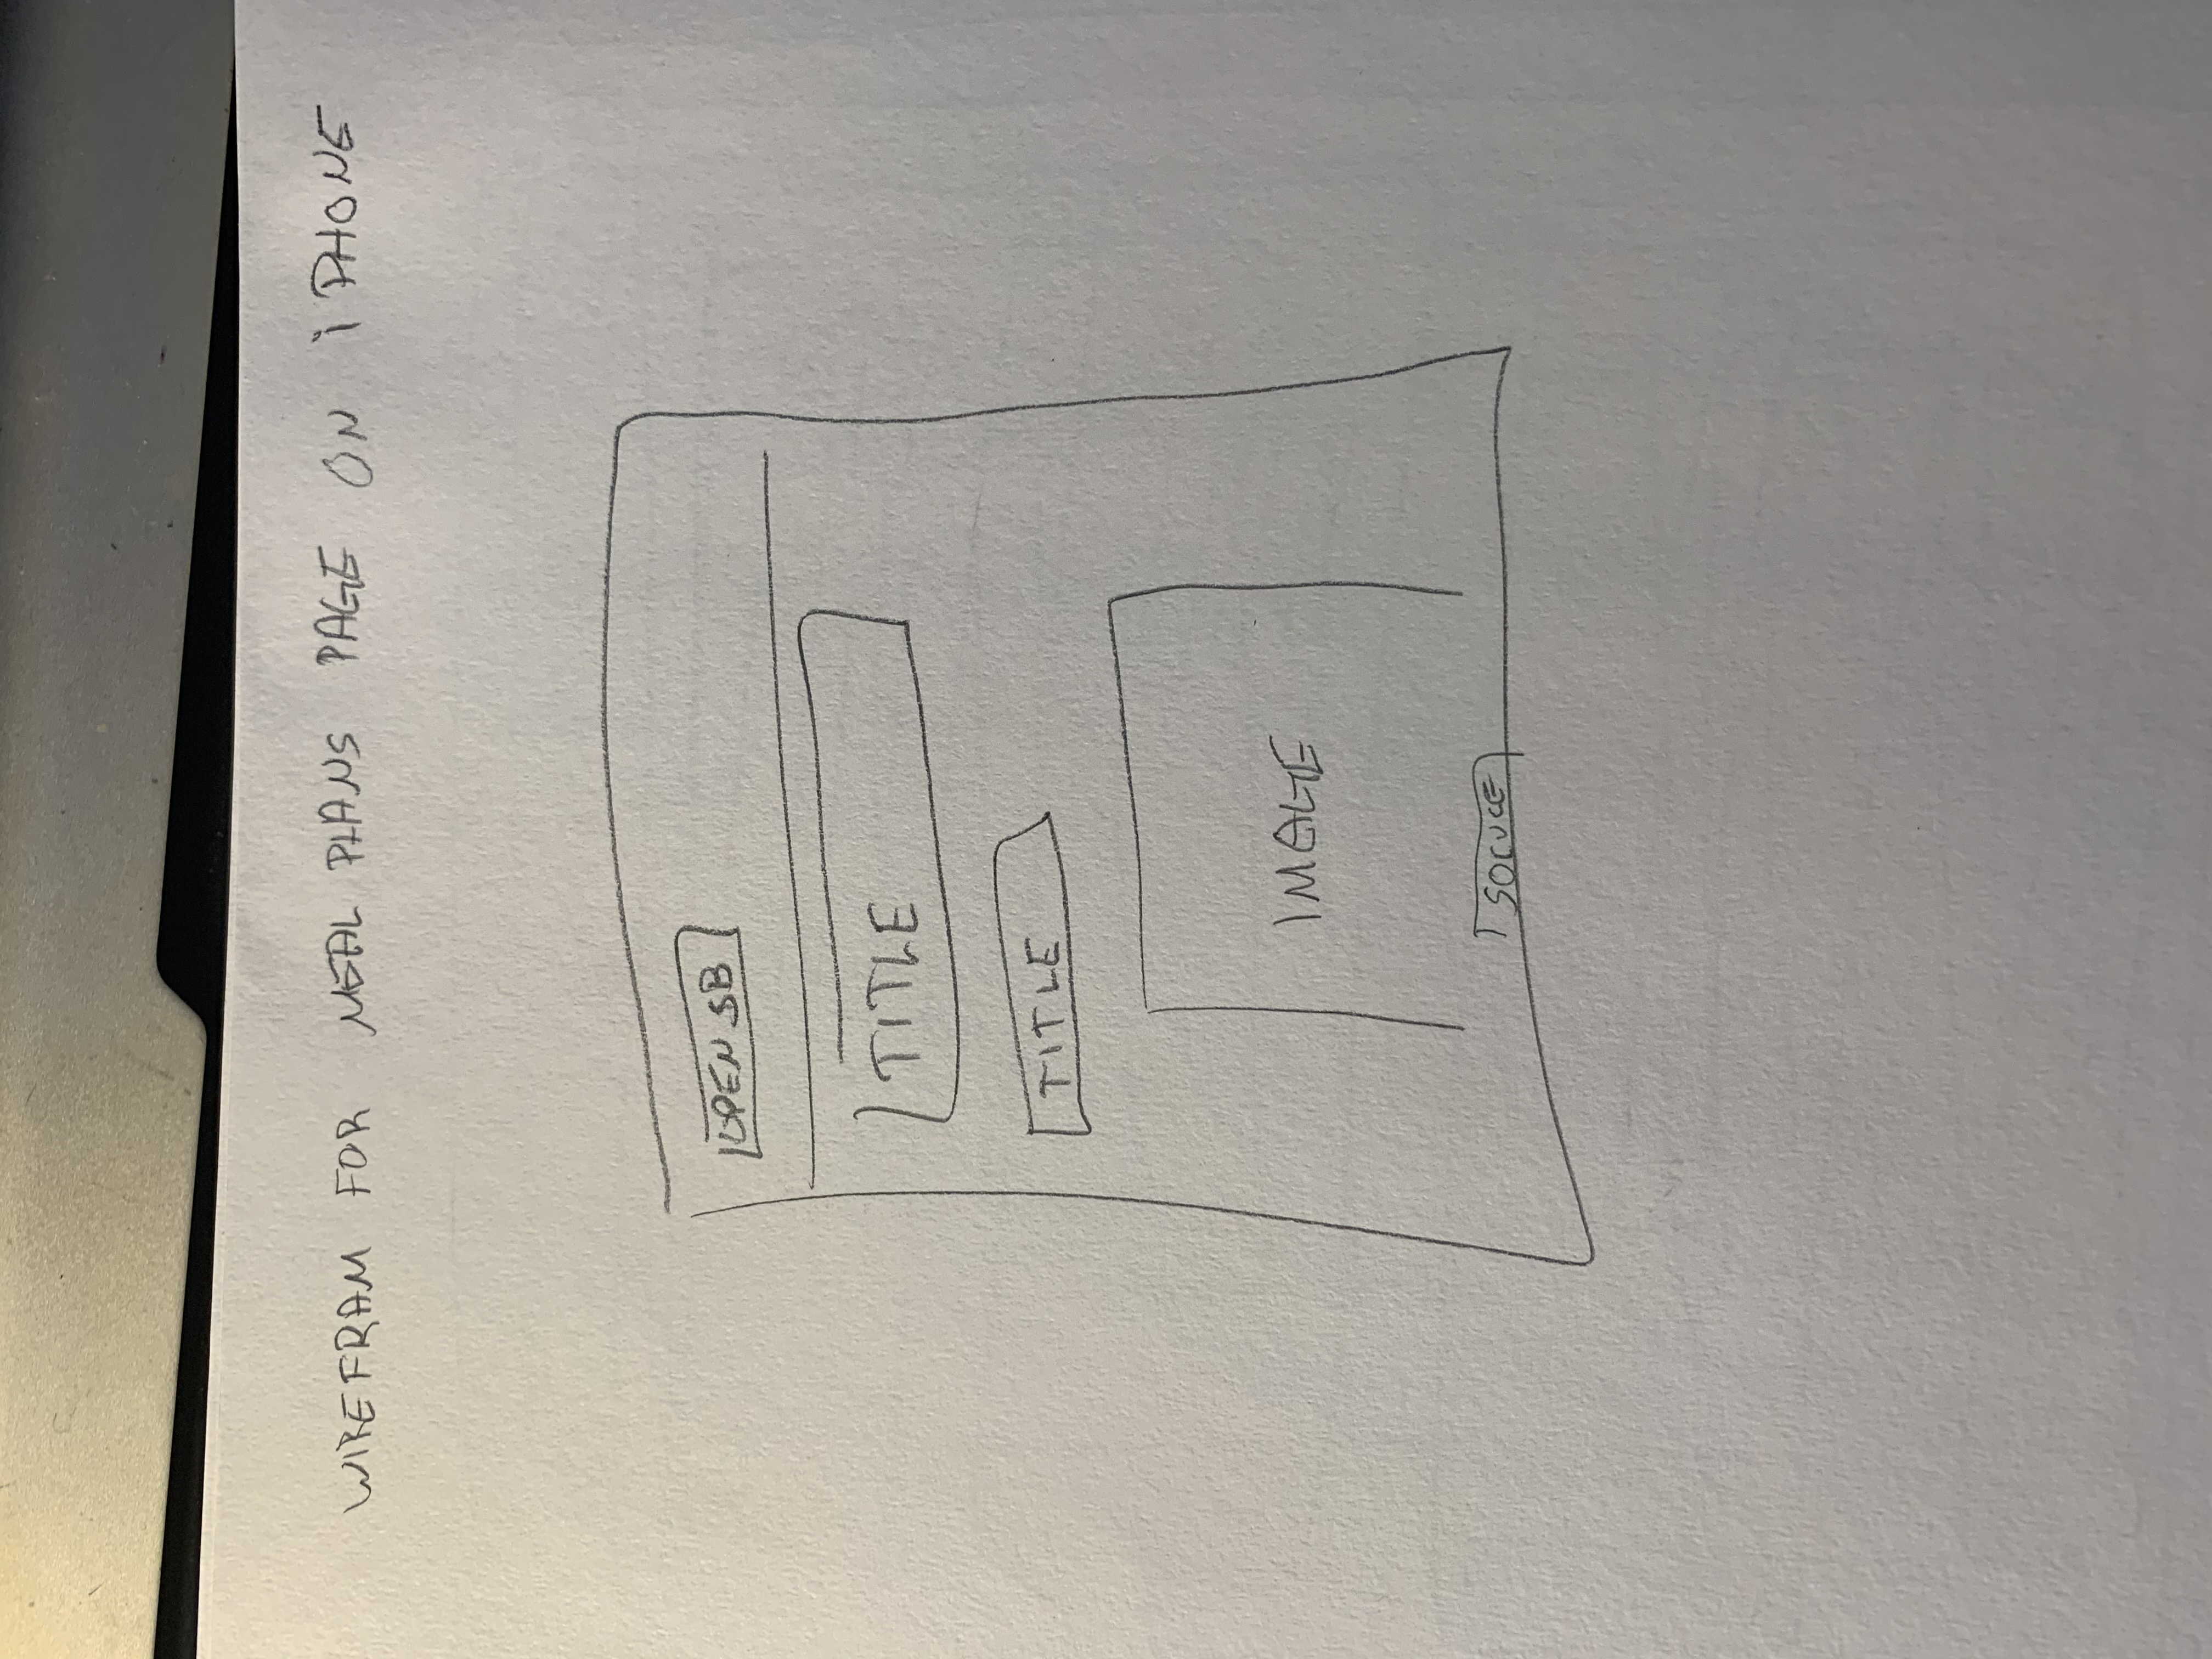 WIREFRAM FOR MEAL PLANS PAGE ON iPHONE
OPEN SB
TITLE
TITLE
IMAGE